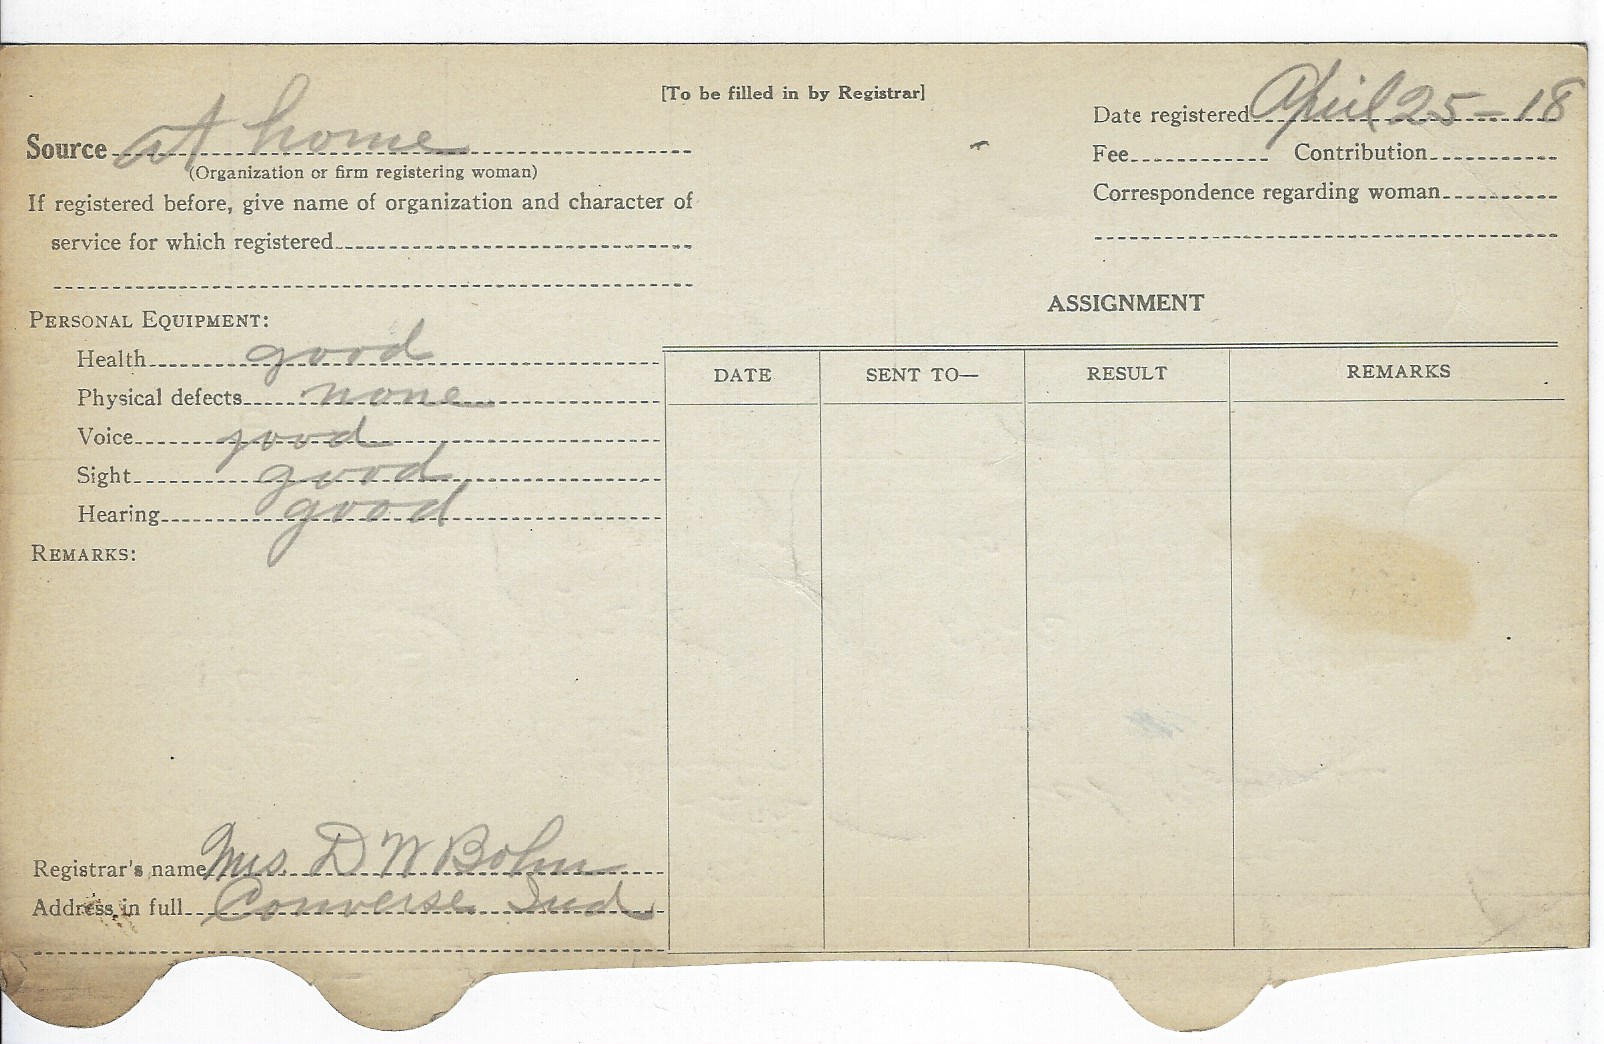 [To be filled in by Registrar]
Source at home
(Organization or firm registering woman)
If registered before, give name of organization and character of
service for which registered
Date registered April 25-18
Fee Contribution
Correspondence regarding woman
PERSONAL EQUIPMENT:
Health good
Physical defects none
Voice good
Sight good
Hearing good
REMARKS:
ASSIGNMENT
DATE SENT TO— RESULT REMARKS
Registrar's name Mrs. D W Bohn
Address in full Converse Ind